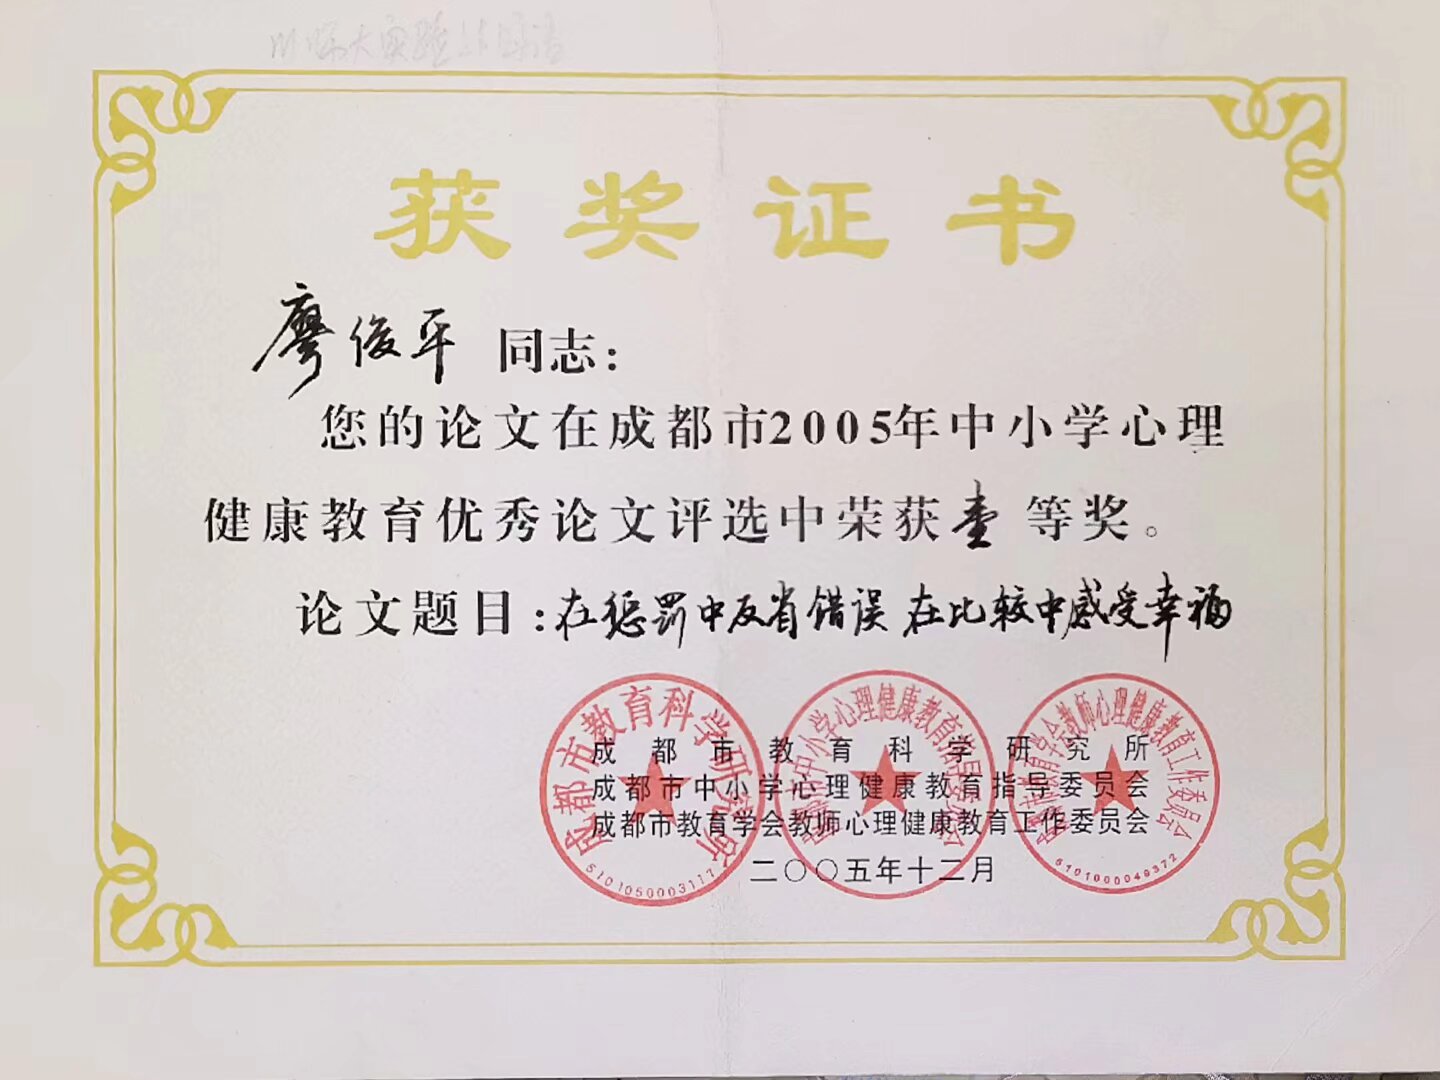 获奖证书
廖俊平 同志：
您的论文在成都市2005年中小学心理
健康教育优秀论文评选中荣获壹等奖。
论文题目：在惩罚中反省错误 在比较中感受幸福
成都市教育科学研究所
成都市中小学心理健康教育指导委员会
成都市教育学会教师心理健康教育工作委员会
二〇〇五年十二月
成都市教育科学研究所
5101050003117
成都市中小学心理健康教育指导委员会
成都市教育学会教师心理健康教育工作委员会
5101000049372